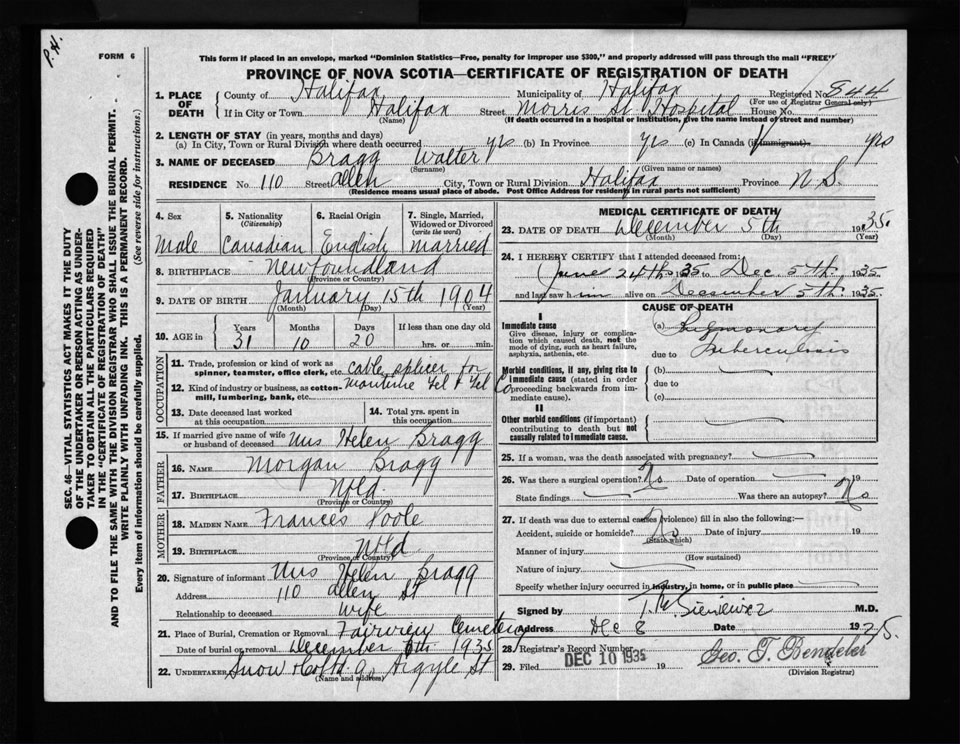 P.H.
FORM 6
This form if placed in an envelope, marked "Dominion Statistics—Free, penalty for improper use $300," and properly addressed will pass through the mail "FREE"
PROVINCE OF NOVA SCOTIA—CERTIFICATE OF REGISTRATION OF DEATH
SEC. 46—VITAL STATISTICS ACT MAKES IT THE DUTY
OF THE UNDERTAKER OR PERSON ACTING AS UNDER-
TAKER TO OBTAIN ALL THE PARTICULARS REQUIRED
IN THE "CERTIFICATE OF REGISTRATION OF DEATH"
AND TO FILE THE SAME WITH THE DIVISION REGISTRAR WHO SHALL ISSUE THE BURIAL PERMIT.
WRITE PLAINLY WITH UNFADING INK. THIS IS A PERMANENT RECORD.
Every item of information should be carefully supplied. (See reverse side for instructions.)
1. PLACE OF DEATH County of Halifax Municipality of Halifax Registered No. 844
(For use of Registrar General only)
If in City or Town Halifax Street Morris St Hospital House No.
(Name) (If death occurred in a hospital or institution, give the name instead of street and number)
2. LENGTH OF STAY (in years, months and days)
(a) In City, Town or Rural Division where death occurred yrs (b) In Province yrs (c) In Canada (if immigrant) yrs
3. NAME OF DECEASED Bragg Walter
(Surname) (Given name or names)
RESIDENCE No. 110 Street Allen City, Town or Rural Division Halifax Province N.S.
(Residence means usual place of abode. Post Office Address for residents in rural parts not sufficient)
4. Sex Male
5. Nationality (Citizenship) Canadian
6. Racial Origin English
7. Single, Married, Widowed or Divorced (write the word) married
8. BIRTHPLACE Newfoundland
(Province or Country)
9. DATE OF BIRTH January 15th 1904
(Month) (Day) (Year)
10. AGE in Years 31 Months 10 Days 20 If less than one day old hrs. or min.
OCCUPATION
11. Trade, profession or kind of work as spinner, teamster, office clerk, etc. cable splicer for
12. Kind of industry or business, as cotton-mill, lumbering, bank, etc. Maritime Tel & Tel Co
13. Date deceased last worked at this occupation
14. Total yrs. spent in this occupation
15. If married give name of wife or husband of deceased Mrs Helen Bragg
FATHER
16. NAME Morgan Bragg
17. BIRTHPLACE Nfld
(Province or Country)
MOTHER
18. MAIDEN NAME Frances Poole
19. BIRTHPLACE Nfld
(Province or Country)
20. Signature of informant Mrs Helen Bragg
Address 110 Allen St
Relationship to deceased Wife
21. Place of Burial, Cremation or Removal Fairview Cemetery
Date of burial or removal December 6th 1935
22. UNDERTAKER Snow Co Ltd Argyle St
(Name and address)
MEDICAL CERTIFICATE OF DEATH
23. DATE OF DEATH December 5th 1935.
(Month) (Day) (Year)
24. I HEREBY CERTIFY that I attended deceased from:
June 24th 1935 to Dec. 5th. 1935.
and last saw him alive on December 5th. 1935.
CAUSE OF DEATH
I
Immediate cause
Give disease, injury or complication which caused death, not the mode of dying, such as heart failure, asphyxia, asthenia, etc.
(a) Pulmonary
due to Tuberculosis
Morbid conditions, if any, giving rise to immediate cause (stated in order proceeding backwards from immediate cause).
(b)
due to
(c)
II
Other morbid conditions (if important) contributing to death but not causally related to immediate cause.
25. If a woman, was the death associated with pregnancy?
26. Was there a surgical operation? No Date of operation 19
State findings Was there an autopsy? No
27. If death was due to external causes (violence) fill in also the following:
Accident, suicide or homicide? No Date of injury 19
(State which)
Manner of injury
(How sustained)
Nature of injury
Specify whether injury occurred in industry, in home, or in public place
Signed by M.D.
Address Dec 8 Date 1935.
28. Registrar's Record Number
29. Filed DEC 10 1935 19 Geo. T. Bendeler
(Division Registrar)